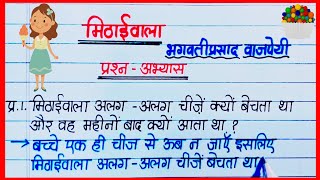 मिठाईवाला
भगवतीप्रसाद वाजपेयी
प्रश्न-अभ्यास
प्र.1. मिठाईवाला अलग-अलग चीज़ें क्यों बेचता था
और वह महीनों बाद क्यों आता था ?
→ बच्चे एक ही चीज से ऊब न जाएँ इसलिए
मिठाईवाला अलग-अलग चीजें बेचता था।